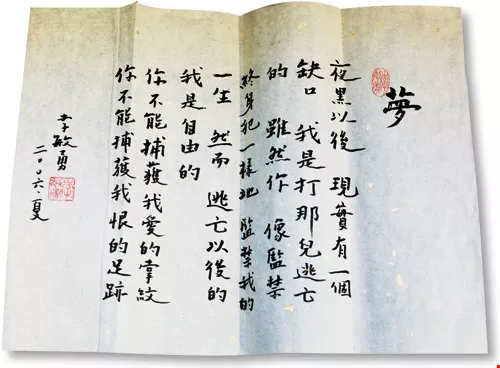 夢
夜黑以後 現實有一個
缺口 我是打那兒逃亡
的 雖然你 像監禁
終身犯一樣地 監禁我的
一生 然而 逃亡以後的
我是自由的
你不能捕獲我愛的掌紋
你不能捕獲我恨的足跡
李敏勇
二〇〇六夏